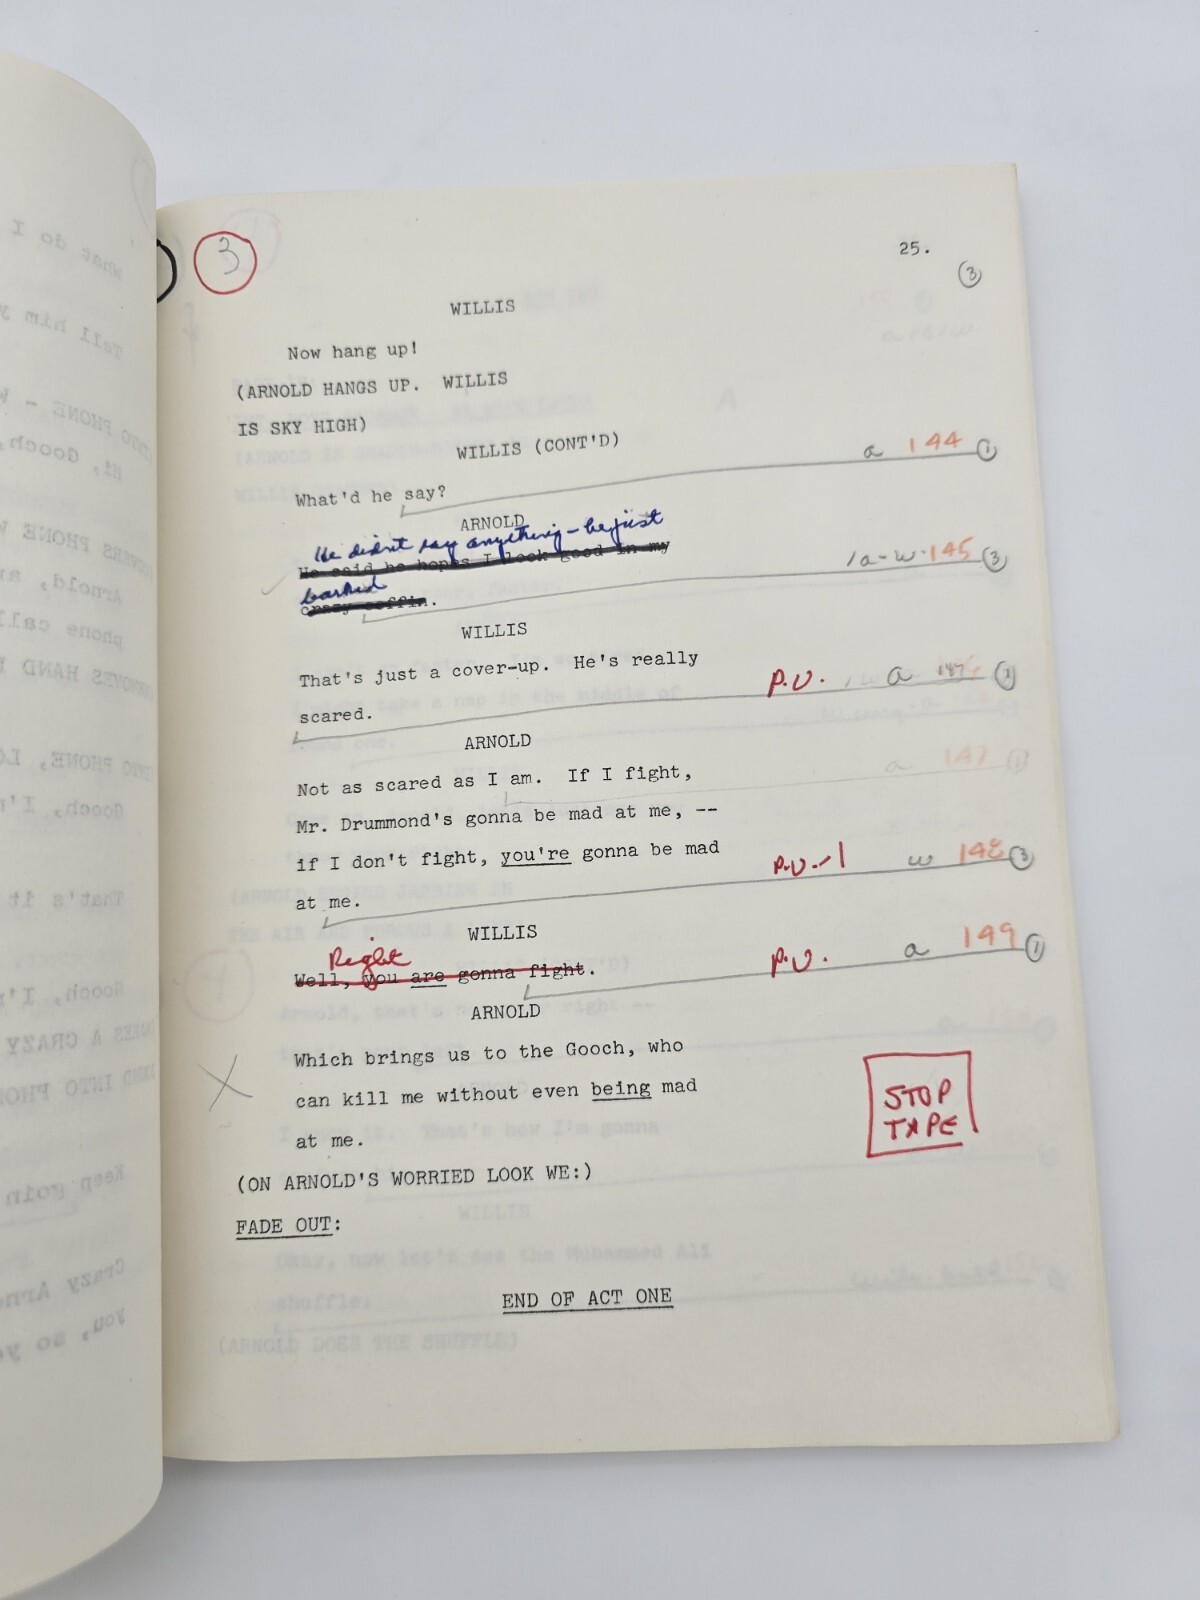 3
25.
3
WILLIS
Now hang up!
(ARNOLD HANGS UP. WILLIS
IS SKY HIGH)
WILLIS (CONT'D)
a 144 1
What'd he say?
ARNOLD
He didn't say anything – he just
He said he hopes I look good in my
barked
crazy coffin.
1 a-w-145 3
WILLIS
That's just a cover-up. He's really
P.U. a 147 1
scared.
ARNOLD
Not as scared as I am. If I fight,
a 147 1
Mr. Drummond's gonna be mad at me, --
if I don't fight, you're gonna be mad
P.U.-1 w 148 3
at me.
WILLIS
Right
Well, you are gonna fight.
P.U. a 149 1
ARNOLD
Which brings us to the Gooch, who
can kill me without even being mad
at me.
STOP
TAPE
(ON ARNOLD'S WORRIED LOOK WE:)
FADE OUT:
END OF ACT ONE